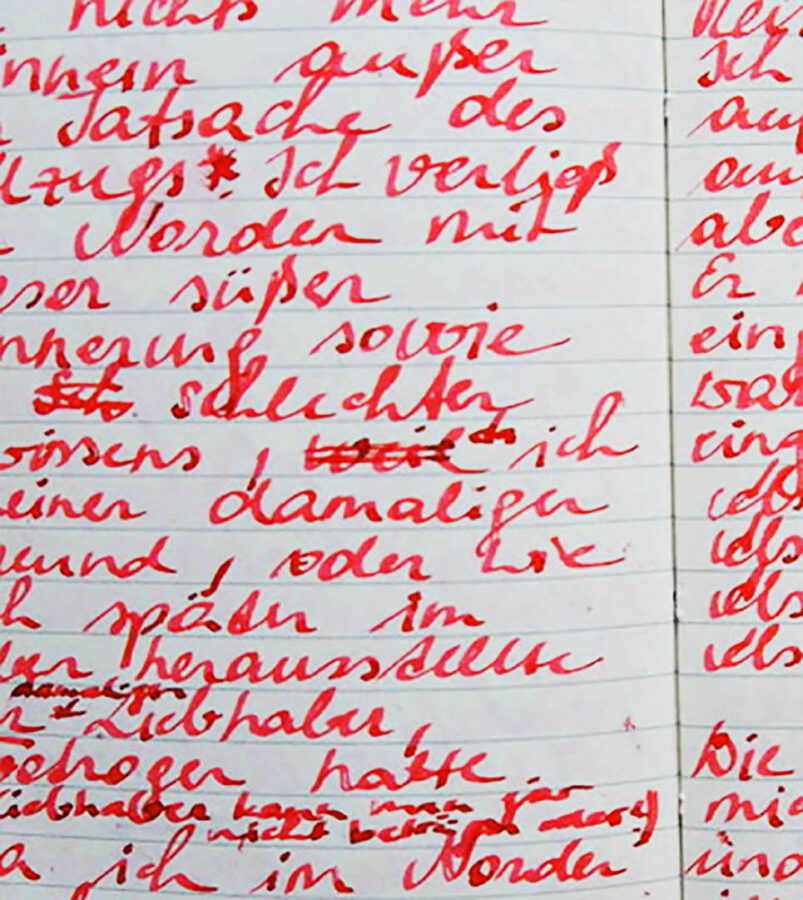 nichts mehr
innern außer
Tatsache des
llzugs* Ich verließ
Norden mit
eser süßer
nnerung sowie
schlechten
wissens, da ich
einen damaligen
eund, oder wie
ch später im
ber herausstellte
damaligen
n * Liebhaber,
betrogen hatte
Liebhaber kann man gar
nicht betrügen oder?)
a ich im Norden
Ich
auf
an
abe
Er
ein
wa
eing
als
als
als
als
Die
mi
und